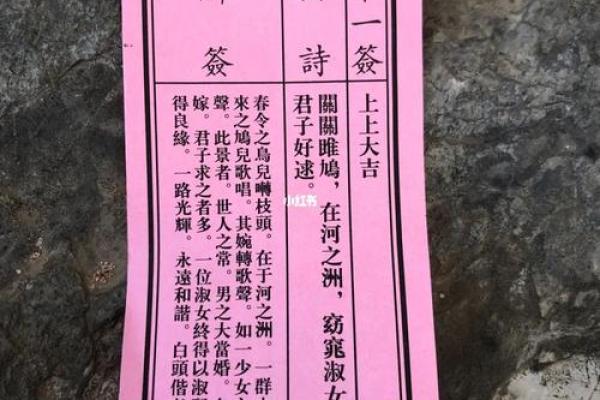 一簽
上上大吉
詩
關關雎鳩，在河之洲，窈窕淑女
君子好逑。
簽
春令之鳥兒囀枝頭。在于河之洲。一群
來之鳩兒歌唱。其婉轉歌聲。如一少女
聲。此景者。世人之常。男之大當婚。
嫁。君子求之者多。一位淑女終得以淑
得良緣。一路光輝。永遠和諧。白頭偕
小红书